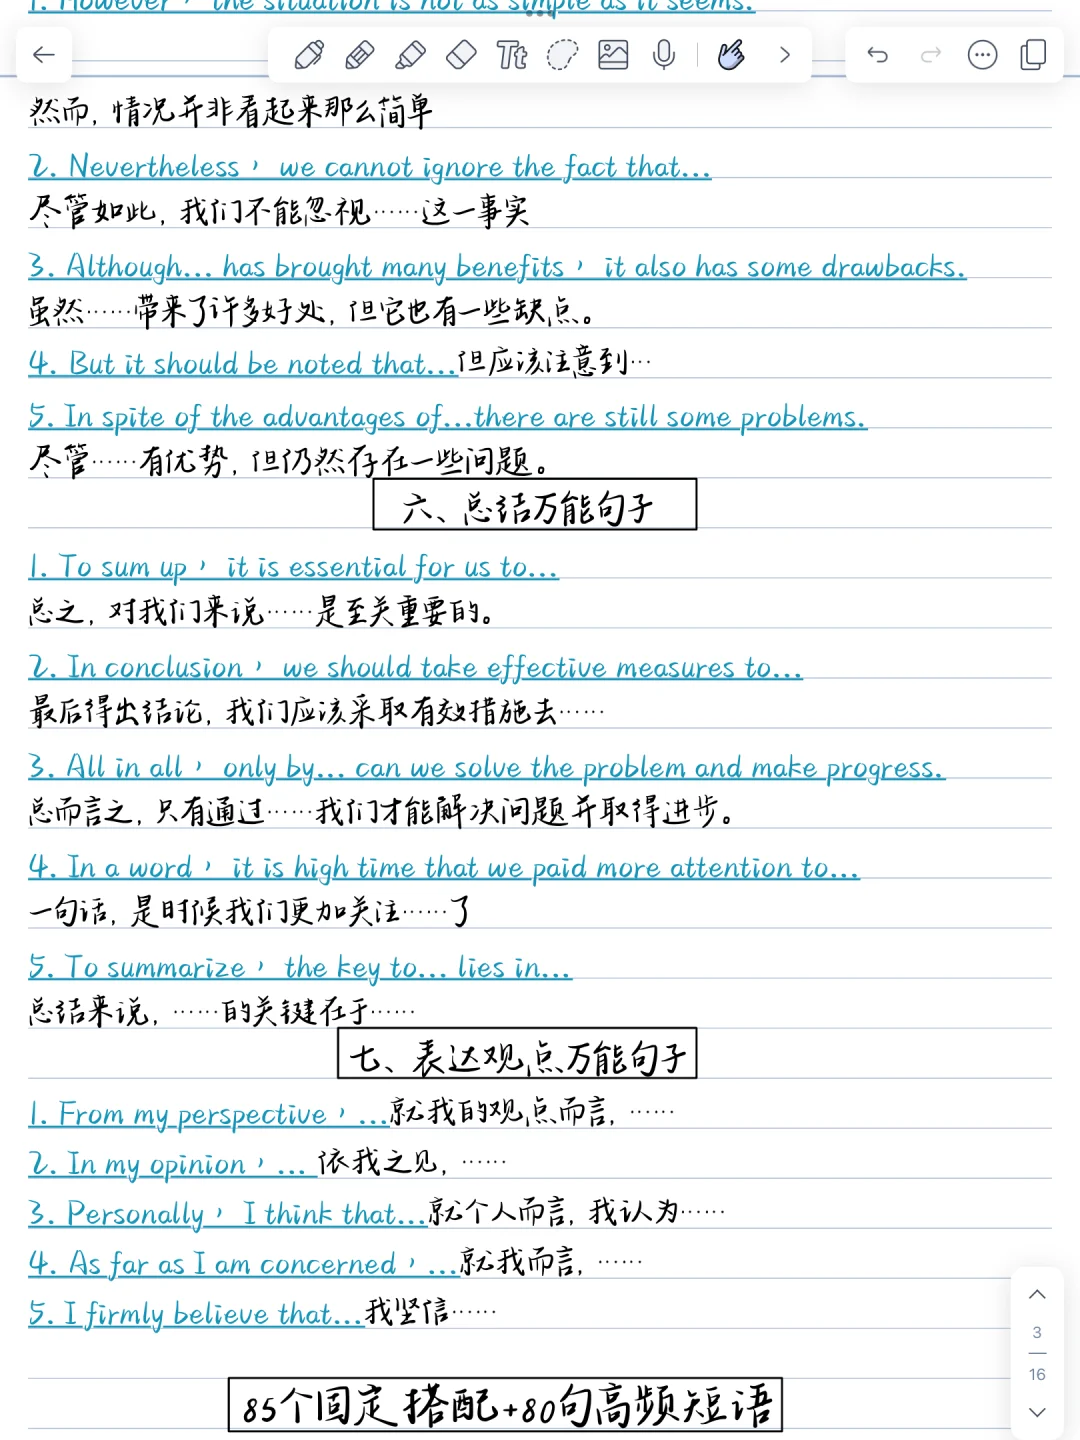 1. However， the situation is not as simple as it seems.
Tt
然而, 情况并非看起来那么简单
2. Nevertheless， we cannot ignore the fact that...
尽管如此, 我们不能忽视……这一事实
3. Although... has brought many benefits， it also has some drawbacks.
虽然……带来了许多好处, 但它也有一些缺点。
4. But it should be noted that...但应该注意到…
5. In spite of the advantages of...there are still some problems.
尽管……有优势, 但仍然存在一些问题。
六、总结万能句子
1. To sum up， it is essential for us to...
总之, 对我们来说……是至关重要的。
2. In conclusion， we should take effective measures to...
最后得出结论, 我们应该采取有效措施去……
3. All in all， only by... can we solve the problem and make progress.
总而言之, 只有通过……我们才能解决问题并取得进步。
4. In a word， it is high time that we paid more attention to...
一句话, 是时候我们更加关注……了
5. To summarize， the key to... lies in...
总结来说, ……的关键在于……
七、表达观点万能句子
1. From my perspective，...就我的观点而言, ……
2. In my opinion，... 依我之见, ……
3. Personally， I think that...就个人而言, 我认为……
4. As far as I am concerned，...就我而言, ……
5. I firmly believe that...我坚信……
3
16
85个固定搭配+80句高频短语